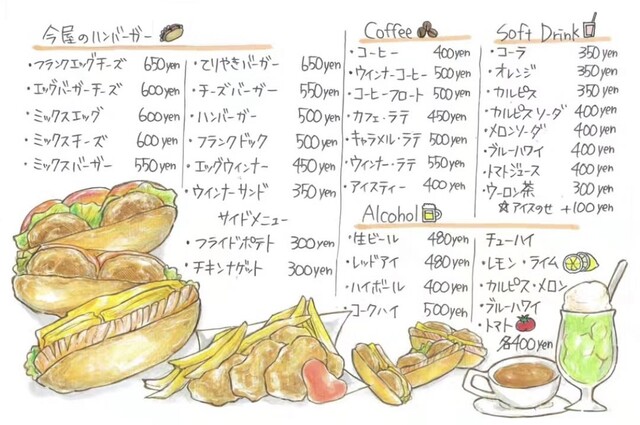 今屋のハンバーガー
・フランクエッグチーズ 650yen
・エッグバーガーチーズ 600yen
・ミックスエッグ 600yen
・ミックスチーズ 600yen
・ミックスバーガー 550yen
・てりやきバーガー 650yen
・チーズバーガー 550yen
・ハンバーガー 500yen
・フランクドック 500yen
・エッグウィンナー 450yen
・ウインナーサンド 350yen
サイドメニュー
・フライドポテト 300yen
・チキンナゲット 300yen
Coffee
・コーヒー 400yen
・ウィンナーコーヒー 500yen
・コーヒーフロート 500yen
・カフェ・ラテ 450yen
・キャラメル・ラテ 500yen
・ウィンナー・ラテ 550yen
・アイスティー 400yen
Soft Drink
・コーラ 350yen
・オレンジ 350yen
・カルピス 350yen
・カルピスソーダ 400yen
・メロンソーダ 400yen
・ブルーハワイ 400yen
・トマトジュース 400yen
・ウーロン茶 300yen
☆アイスのせ +100yen
Alcohol
・生ビール 480yen
・レッドアイ 480yen
・ハイボール 400yen
・コークハイ 500yen
チューハイ
・レモン・ライム
・カルピス・メロン
・ブルーハワイ
・トマト
各400yen